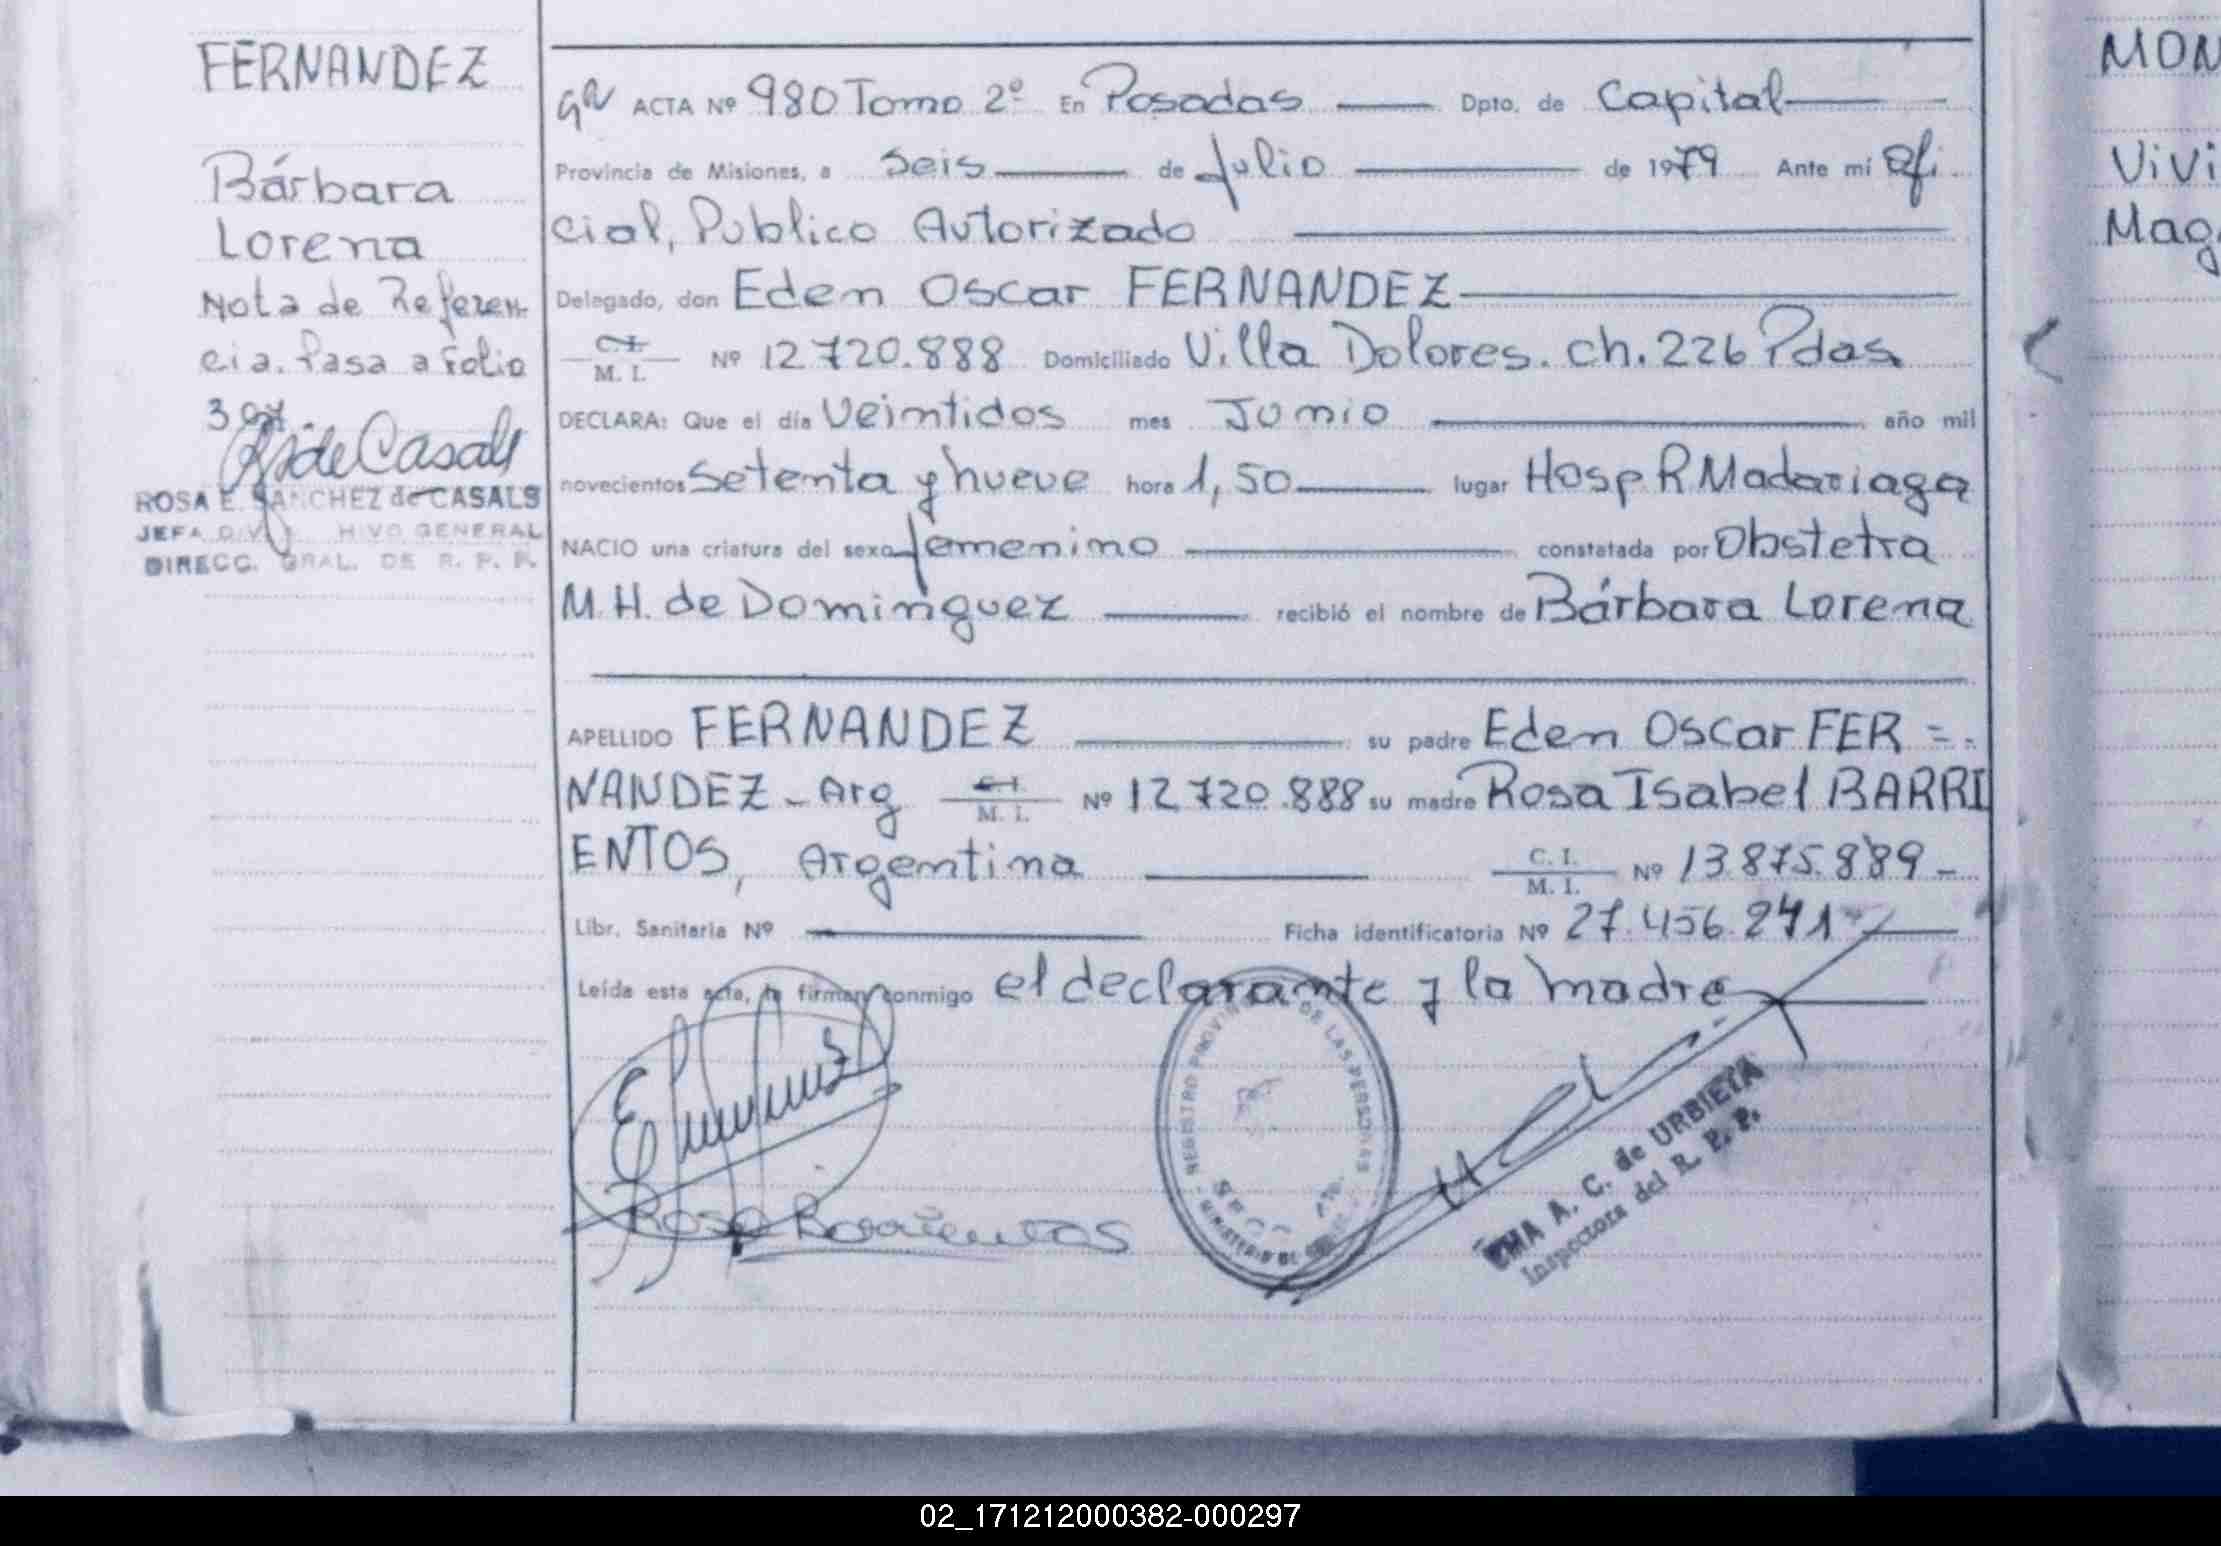 FERNANDEZ
Bárbara
Lorena
Nota de Referen
cia. Pasa a Folio
397
ROSA E. SANCHEZ de CASALS
JEFA DIV. HIVO GENERAL
DIRECC. GRAL. DE R. P. P.
ACTA Nº 980 Tomo 2º En Posadas Dpto. de Capital
Provincia de Misiones, a seis de julio de 1979 Ante mí Ofi
cial, Publico Autorizado
Delegado, don Eden Oscar FERNANDEZ
C.I. M. I. Nº 12.720.888 Domiciliado Villa Dolores. ch. 226 Pdas
DECLARA: Que el día Veintidos mes Junio año mil
novecientos setenta y nueve hora 1,50 lugar Hosp R Madariaga
NACIO una criatura del sexo femenino constatada por Obstetra
M. H. de Dominguez recibió el nombre de Bárbara Lorena
APELLIDO FERNANDEZ su padre Eden Oscar FER =
NANDEZ - Arg C.I. M. I. Nº 12.720.888 su madre Rosa Isabel BARRI
ENTOS, Argentina C. I. M. I. Nº 13.875.889 -
Libr. Sanitaria Nº Ficha identificatoria Nº 27.456.271
Leída esta acta, la firman conmigo el declarante y la madre
Rosa Barrientos
REGISTRO PROVINCIAL DE LAS PERSONAS
MINISTERIO DE
A. C. de URBIETA
Inspectora del R. P. P.
MON
Vivi
Mag
02_171212000382-000297